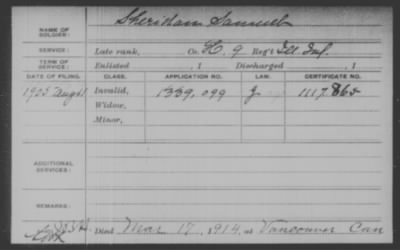 NAME OF SOLDIER: Sheridan Samuel
SERVICE: Late rank, Co. H. 9 Reg't Ill Inf.
TERM OF SERVICE: Enlisted , 1 Discharged , 1
DATE OF FILING. CLASS. APPLICATION NO. LAW. CERTIFICATE NO.
1905 Aug 1 Invalid, 1339,099 g 1117865
Widow,
Minor,
ADDITIONAL SERVICES:
REMARKS:
Died Mar 17, 1914, at Vancouver Can